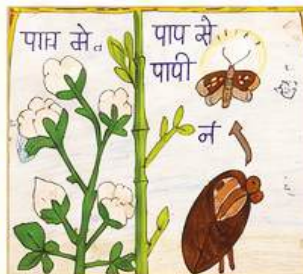 पाप मे.
पाप से
पापी
न